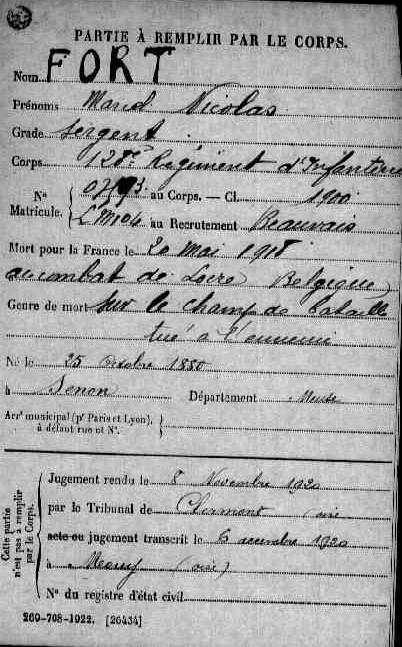 PARTIE À REMPLIR PAR LE CORPS.
Nom FORT
Prénoms Marcel Nicolas
Grade Sergent
Corps 128e Régiment d'Infanterie
Nº Matricule. au Corps. — Cl. 1900
au Recrutement Beauvais
Mort pour la France le 20 Mai 1918
au combat de Locre (Belgique)
Genre de mort Sur le champ de bataille
tué à l'ennemi
Né le 25 Octobre 1880
à Senon Département Meuse
Arrt municipal (pr Paris et Lyon),
à défaut rue et Nº.
Cette partie
n'est pas à remplir
par le Corps.
Jugement rendu le 8 Novembre 1920
par le Tribunal de Clermont (oise
acte ou jugement transcrit le 6 décembre 1920
à (oise)
Nº du registre d'état civil
269-708-1922. [26434]